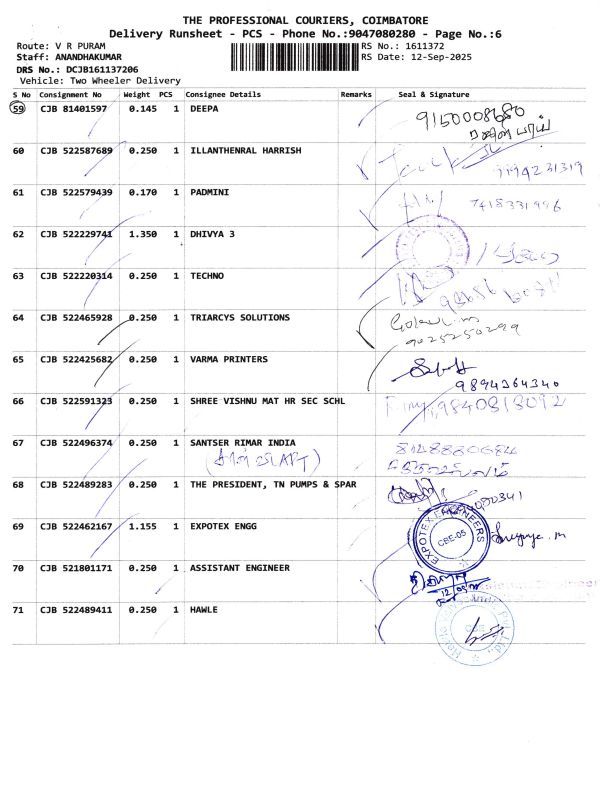 THE PROFESSIONAL COURIERS, COIMBATORE
Delivery Runsheet - PCS - Phone No.:9047080280 - Page No.:6
Route: V R PURAM
RS No.: 1611372
Staff: ANANDHAKUMAR
RS Date: 12-Sep-2025
DRS No.: DCJB161137206
Vehicle: Two Wheeler Delivery
S No Consignment No Weight PCS Consignee Details Remarks Seal & Signature
59 CJB 81401597 0.145 1 DEEPA 9150008680
60 CJB 522587689 0.250 1 ILLANTHENRAL HARRISH
61 CJB 522579439 0.170 1 PADMINI 7418331996
62 CJB 522229741 1.350 1 DHIVYA 3
63 CJB 522220314 0.250 1 TECHNO
64 CJB 522465928 0.250 1 TRIARCYS SOLUTIONS
9025250299
65 CJB 522425682 0.250 1 VARMA PRINTERS
9894364340
66 CJB 522591323 0.250 1 SHREE VISHNU MAT HR SEC SCHL 9840818092
67 CJB 522496374 0.250 1 SANTSER RIMAR INDIA
68 CJB 522489283 0.250 1 THE PRESIDENT, TN PUMPS & SPAR
69 CJB 522462167 1.155 1 EXPOTEX ENGG
EXPOTEX ENGINEERS
CBE-05
70 CJB 521801171 0.250 1 ASSISTANT ENGINEER
71 CJB 522489411 0.250 1 HAWLE